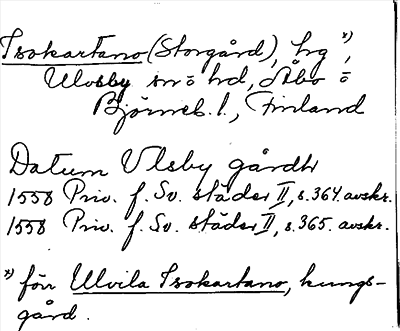 Isokartano (Storgård), hg x),
Ulvsby sn o hd, Åbo o
Björneb. l., Finland
Datum Vlsby gårdh
1558 Priv. f. Sv. städer II, s. 364. avskr.
1558 Priv. f. Sv. städer II, s. 365. avskr.
x) förr Ulvila Isokartano, kungs-
gård.